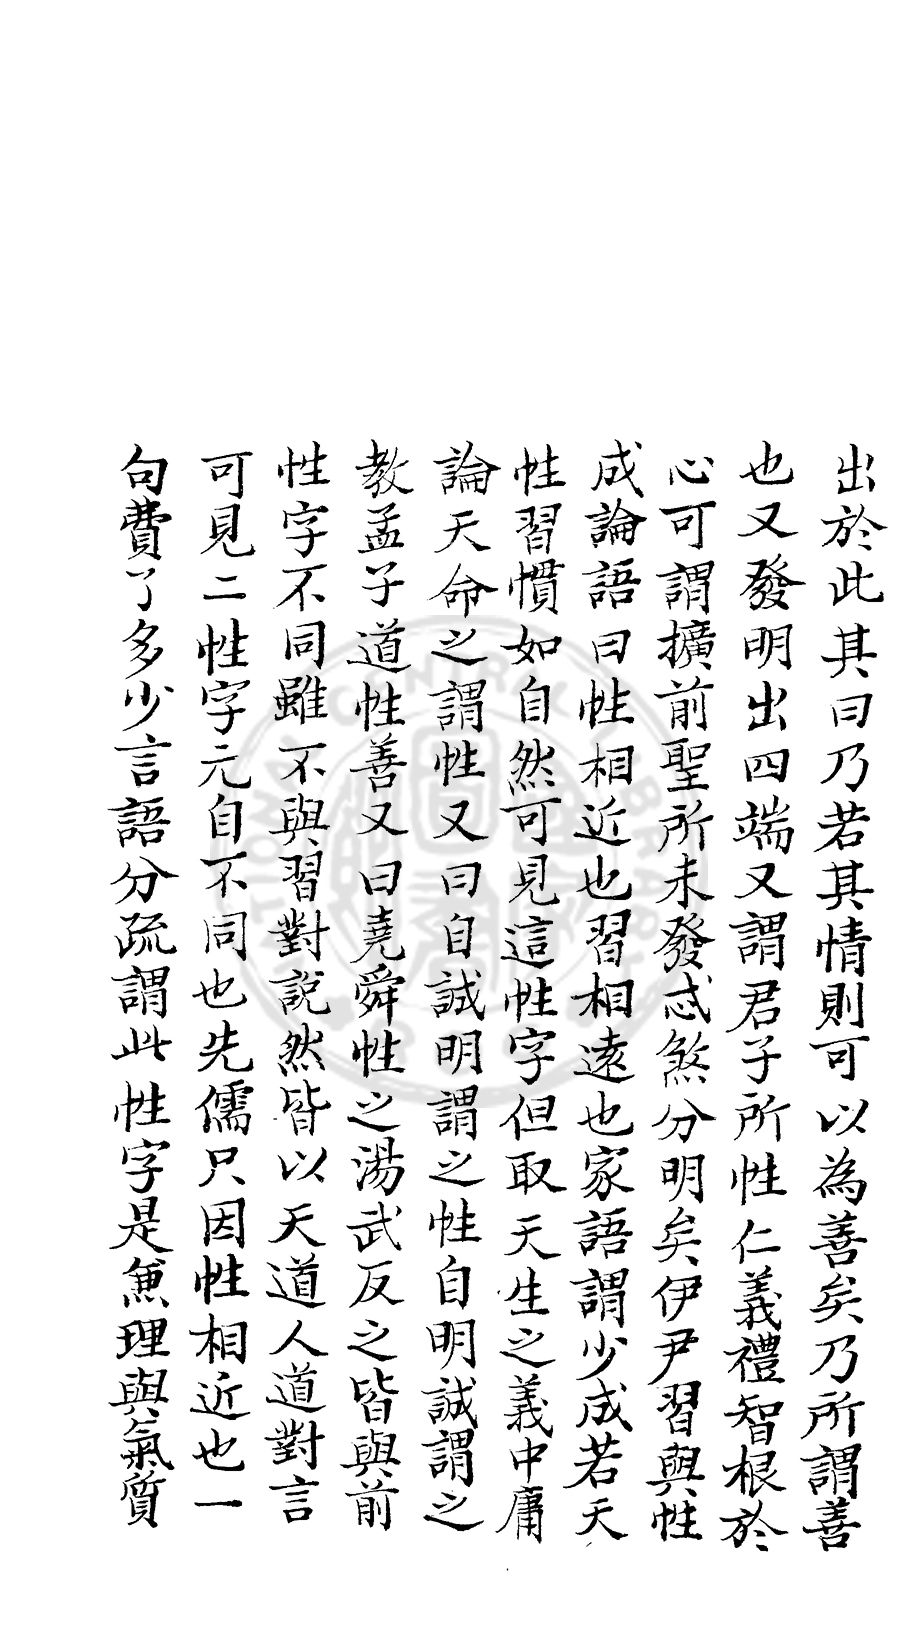 出於此其曰乃若其情則可以為善矣乃所謂善
也又發明出四端又謂君子所性仁義禮智根於
心可謂擴前聖所未發忒煞分明矣伊尹習與性
成論語曰性相近也習相遠也家語謂少成若天
性習慣如自然可見這性字但取天生之義中庸
論天命之謂性又曰自誠明謂之性自明誠謂之
教孟子道性善又曰堯舜性之湯武反之皆與前
性字不同雖不與習對說然皆以天道人道對言
可見二性字元自不同也先儒只因性相近也一
句費了多少言語分疏謂此性字是兼理與氣質